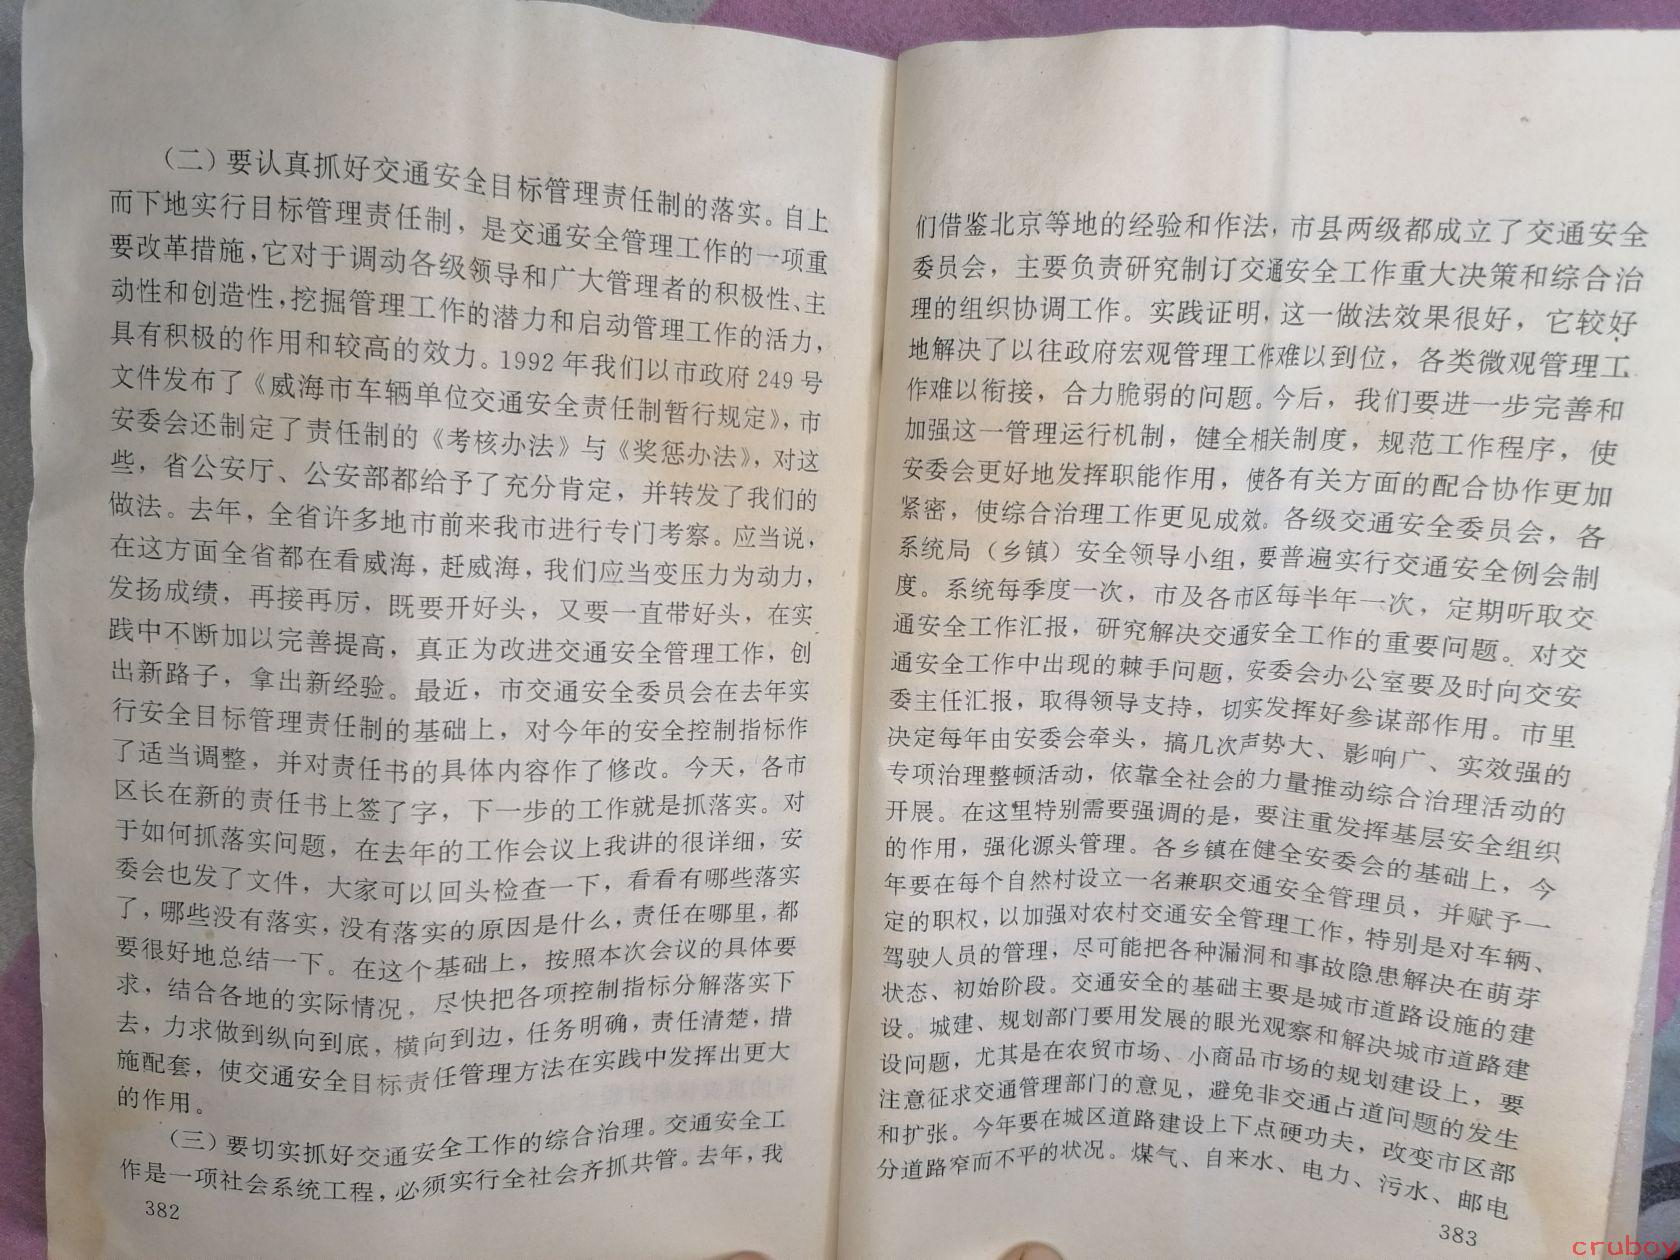 （二）要认真抓好交通安全目标管理责任制的落实。自上
而下地实行目标管理责任制，是交通安全管理工作的一项重
要改革措施，它对于调动各级领导和广大管理者的积极性、主
动性和创造性，挖掘管理工作的潜力和启动管理工作的活力，
具有积极的作用和较高的效力。1992年我们以市政府249号
文件发布了《威海市车辆单位交通安全责任制暂行规定》，市
安委会还制定了责任制的《考核办法》与《奖惩办法》，对这
些，省公安厅、公安部都给予了充分肯定，并转发了我们的
做法。去年，全省许多地市前来我市进行专门考察。应当说，
在这方面全省都在看威海，赶威海，我们应当变压力为动力，
发扬成绩，再接再厉，既要开好头，又要一直带好头，在实
践中不断加以完善提高，真正为改进交通安全管理工作，创
出新路子，拿出新经验。最近，市交通安全委员会在去年实
行安全目标管理责任制的基础上，对今年的安全控制指标作
了适当调整，并对责任书的具体内容作了修改。今天，各市
区长在新的责任书上签了字，下一步的工作就是抓落实。对
于如何抓落实问题，在去年的工作会议上我讲的很详细，安
委会也发了文件，大家可以回头检查一下，看看有哪些落实
了，哪些没有落实，没有落实的原因是什么，责任在哪里，都
要很好地总结一下。在这个基础上，按照本次会议的具体要
求，结合各地的实际情况，尽快把各项控制指标分解落实下
去，力求做到纵向到底，横向到边，任务明确，责任清楚，措
施配套，使交通安全目标责任管理方法在实践中发挥出更大
的作用。
（三）要切实抓好交通安全工作的综合治理。交通安全工
作是一项社会系统工程，必须实行全社会齐抓共管。去年，我
382
们借鉴北京等地的经验和作法，市县两级都成立了交通安全
委员会，主要负责研究制订交通安全工作重大决策和综合治
理的组织协调工作。实践证明，这一做法效果很好，它较好
地解决了以往政府宏观管理工作难以到位，各类微观管理工
作难以衔接，合力脆弱的问题。今后，我们要进一步完善和
加强这一管理运行机制，健全相关制度，规范工作程序，使
安委会更好地发挥职能作用，使各有关方面的配合协作更加
紧密，使综合治理工作更见成效。各级交通安全委员会，各
系统局（乡镇）安全领导小组，要普遍实行交通安全例会制
度。系统每季度一次，市及各市区每半年一次，定期听取交
通安全工作汇报，研究解决交通安全工作的重要问题。对交
通安全工作中出现的棘手问题，安委会办公室要及时向交安
委主任汇报，取得领导支持，切实发挥好参谋部作用。市里
决定每年由安委会牵头，搞几次声势大、影响广、实效强的
专项治理整顿活动，依靠全社会的力量推动综合治理活动的
开展。在这里特别需要强调的是，要注重发挥基层安全组织
的作用，强化源头管理。各乡镇在健全安委会的基础上，今
年要在每个自然村设立一名兼职交通安全管理员，并赋予一
定的职权，以加强对农村交通安全管理工作，特别是对车辆、
驾驶人员的管理，尽可能把各种漏洞和事故隐患解决在萌芽
状态、初始阶段。交通安全的基础主要是城市道路设施的建
设。城建、规划部门要用发展的眼光观察和解决城市道路建
设问题，尤其是在农贸市场、小商品市场的规划建设上，要
注意征求交通管理部门的意见，避免非交通占道问题的发生
和扩张。今年要在城区道路建设上下点硬功夫，改变市区部
分道路窄而不平的状况。煤气、自来水、电力、污水、邮电
383
cruboy